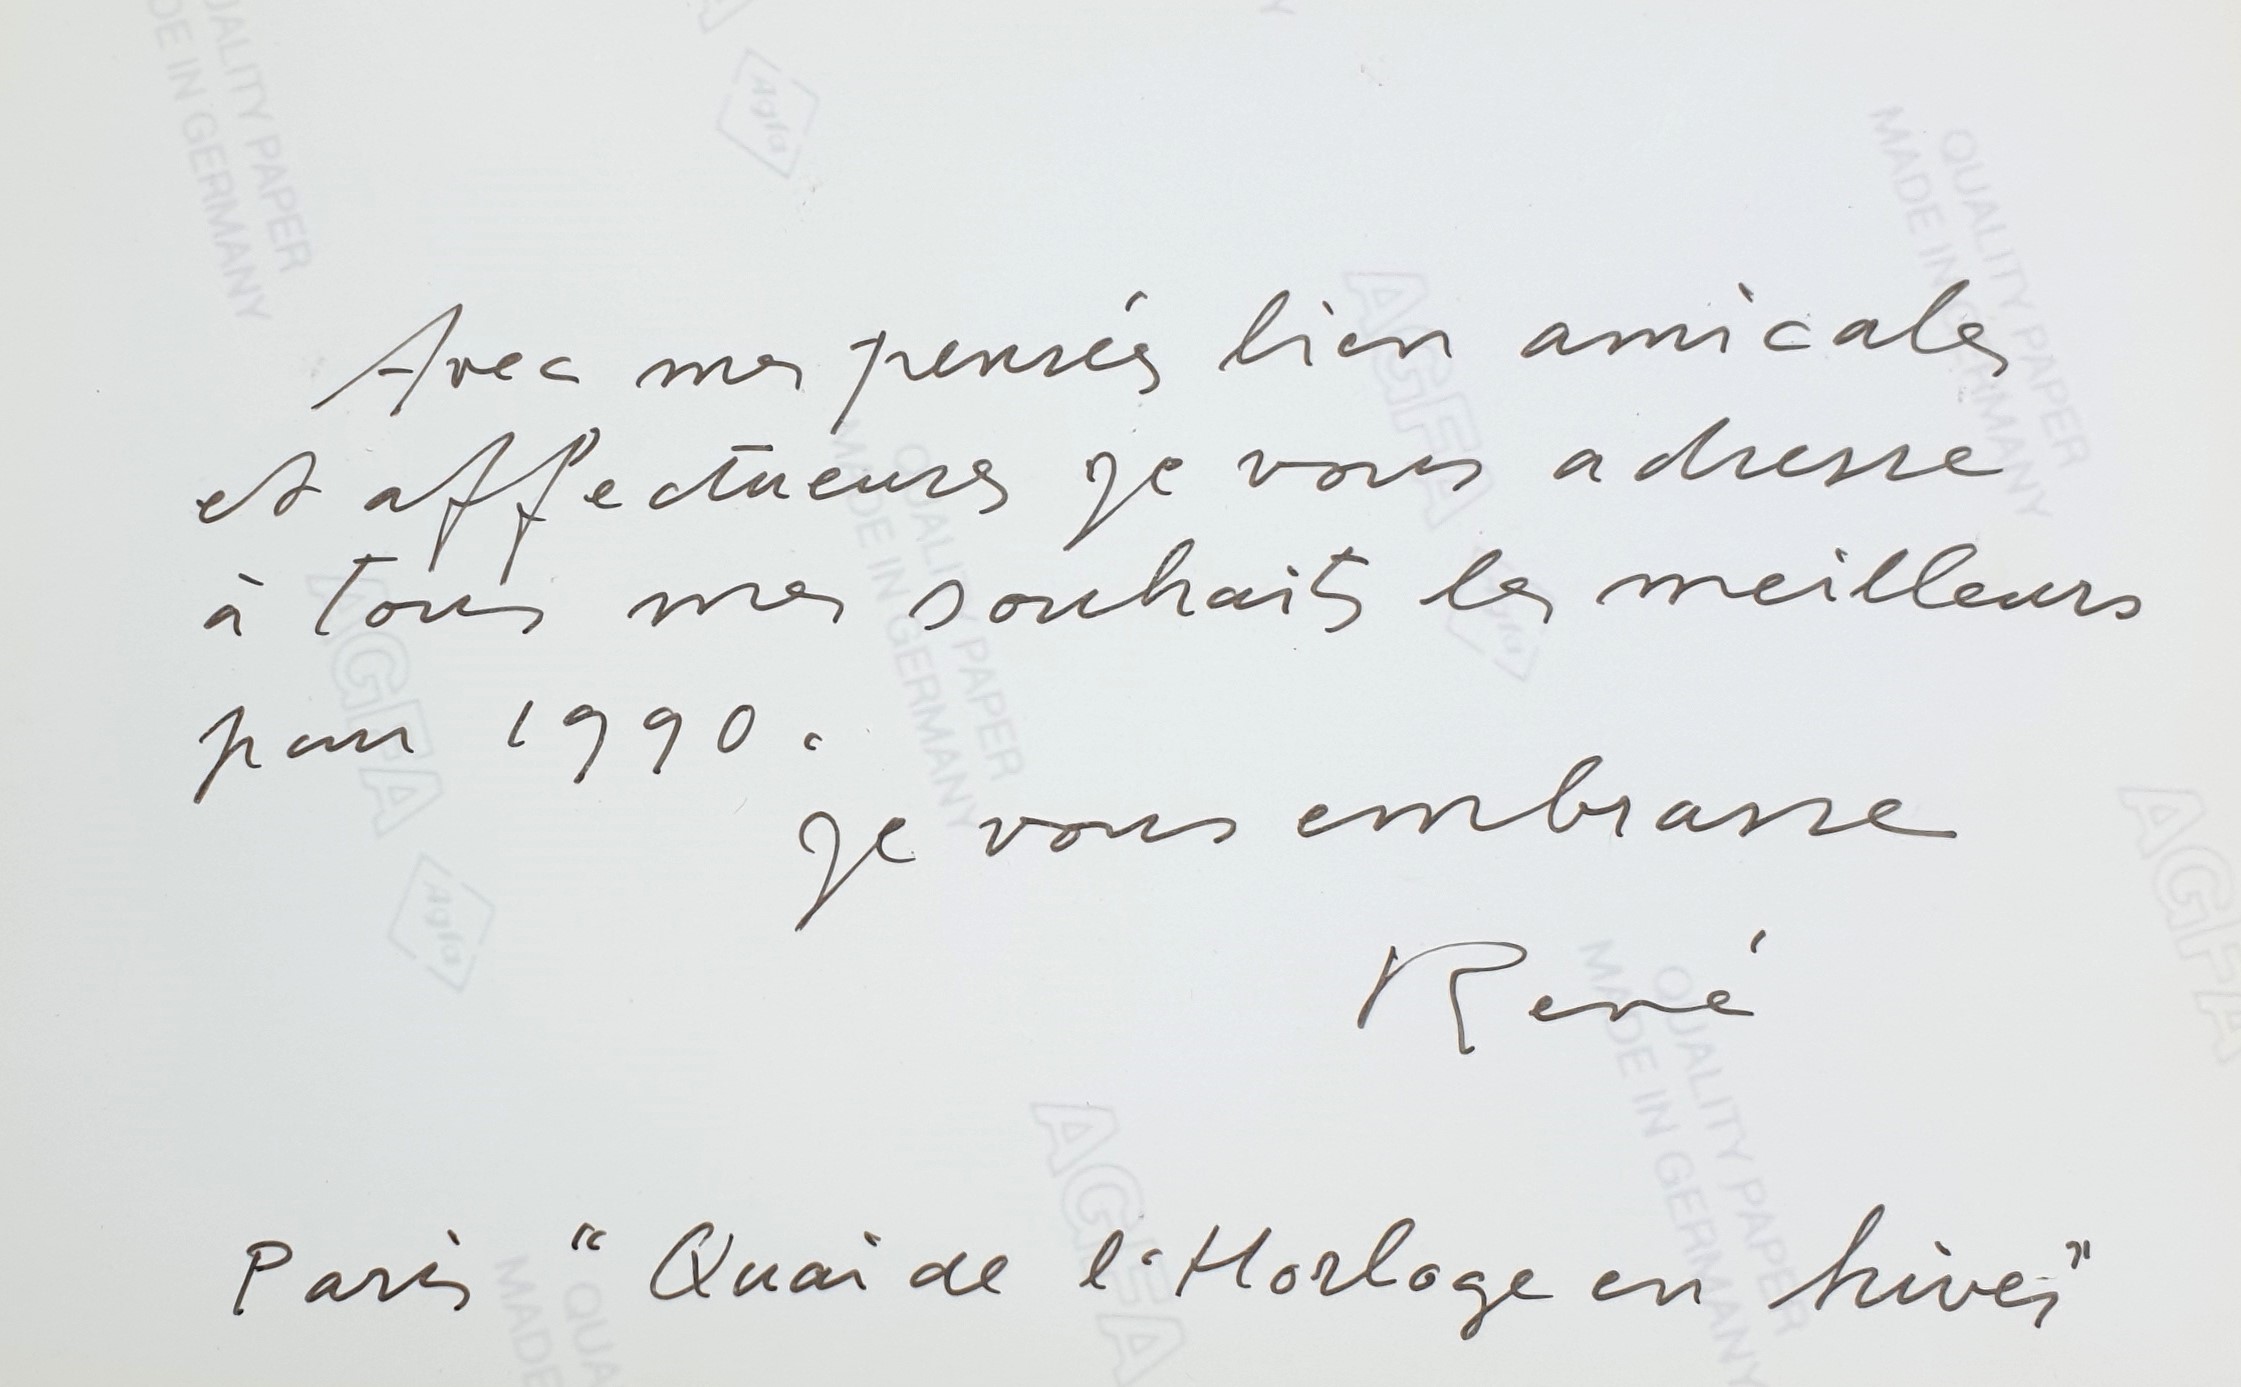 Avec mes pensées bien amicales
et affectueuses je vous adresse
à tous mes souhaits les meilleurs
pour 1990.
je vous embrasse
René
Paris "Quai de l'Horloge en hiver"
QUALITY PAPER
MADE IN GERMANY
Agfa
QUALITY PAPER
MADE IN GERMANY
AGFA
Agfa
QUALITY PAPER
MADE IN GERMANY
AGFA
Agfa
AGFA
QUALITY PAPER
MADE IN GERMANY
AGFA
QUA
MADE